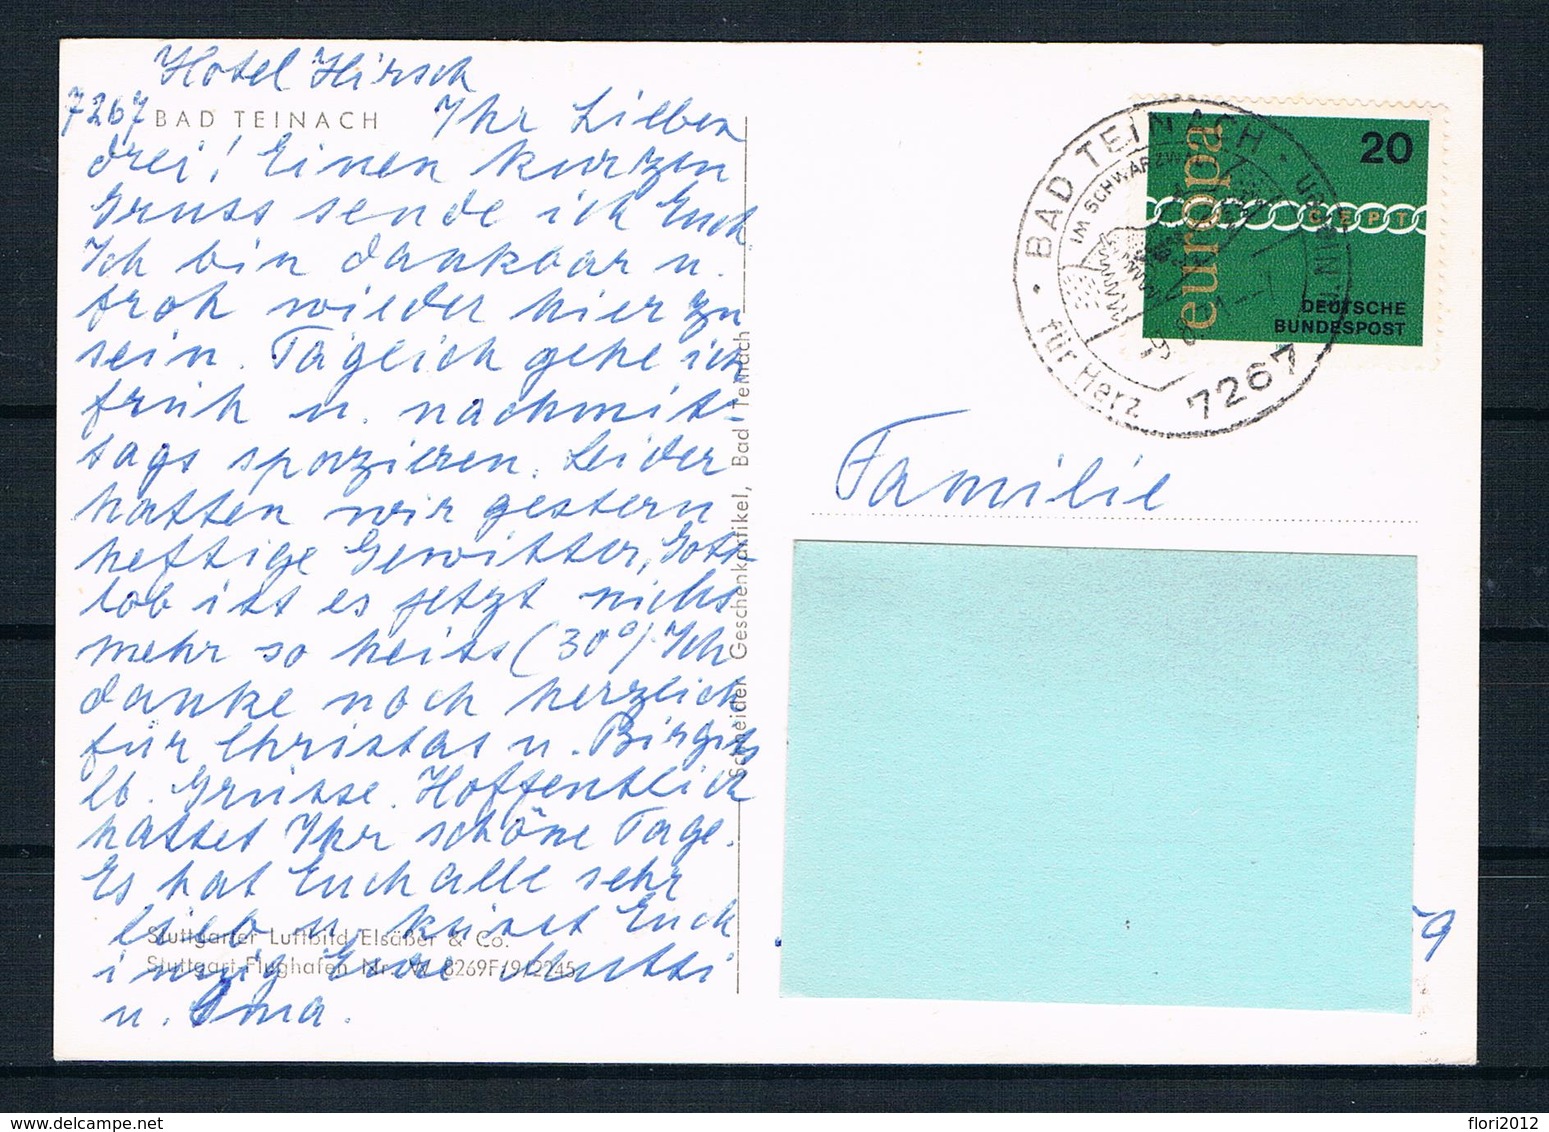 Hotel Hirsch
7267 BAD TEINACH Ihr Lieben
drei! Einen kurzen
Gruss sende ich Euch.
Ich bin dankbar u.
froh wieder hier zu
sein. Täglich gehe ich
früh u. nachmit-
tags spazieren. Leider
hatten wir gestern
heftige Gewitter, Gott
lob ist es jetzt nicht
mehr so heiss (30°). Ich
danke noch herzlich
für Christas u. Birgits
lb. Grüsse. Hoffentlich
hattet Ihr schöne Tage.
Es hat Euch alle sehr
lieb u. küsst Euch
innig Eure Mutti
u. Oma.
Stuttgarter Luftbild Elsäßer & Co.
Stuttgart-Flughafen Nr. W 8269F/9/2245
Schneider Geschenkartikel, Bad Teinach
BAD TEINACH
IM SCHWARZW
für Herz
7267
europa
20
CEPT
DEUTSCHE
BUNDESPOST
Familie
delcampe.net
flori2012